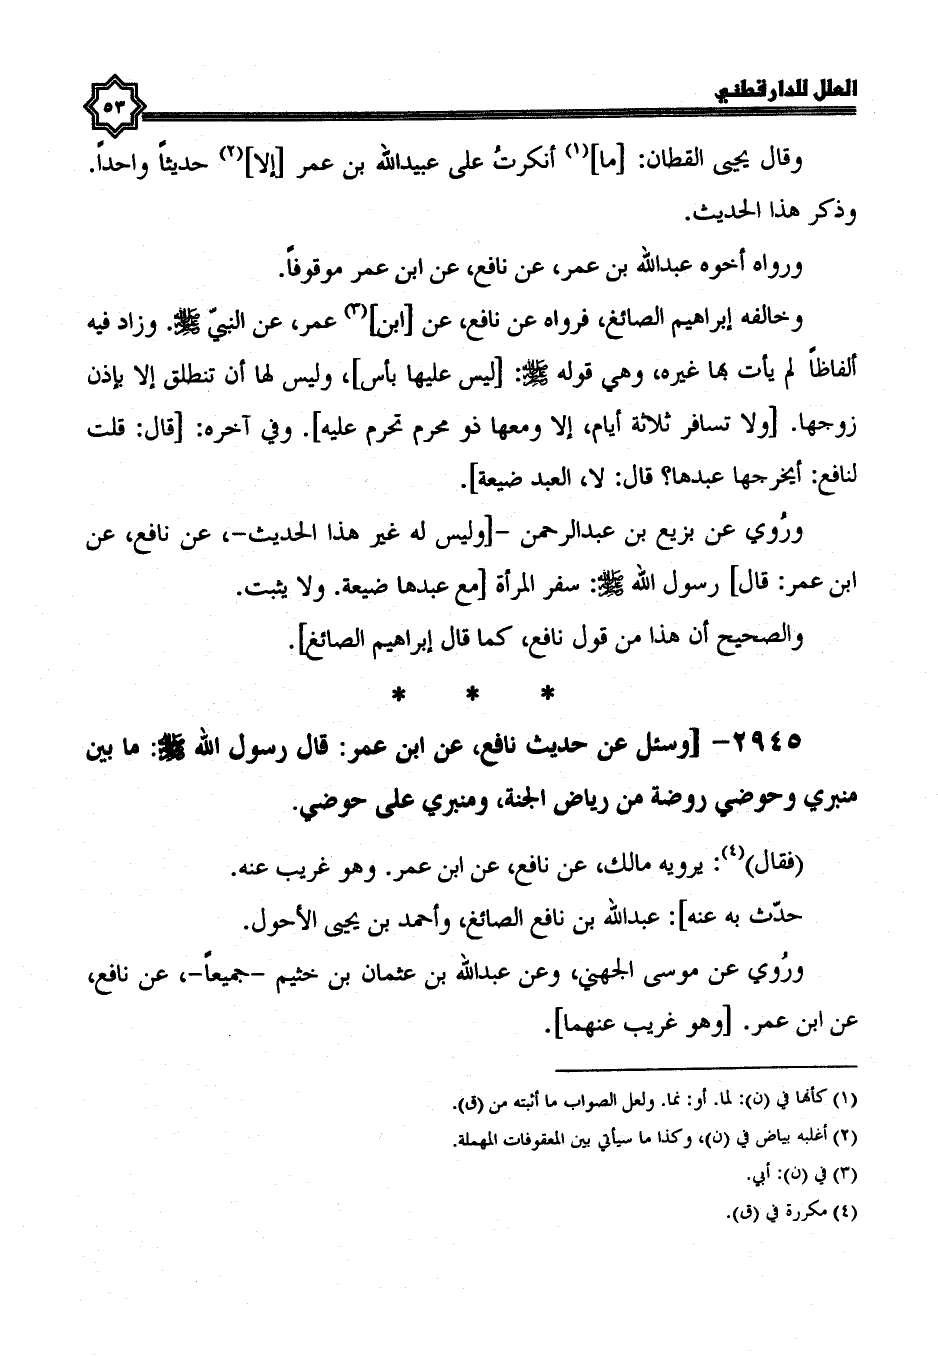 العلل للدارقطني
٥٣
وقال يحيى القطان: [ما](١) أنكرتُ على عبيدالله بن عمر [إلا](٢) حديثاً واحداً.
وذكر هذا الحديث.
ورواه أخوه عبدالله بن عمر، عن نافع، عن ابن عمر موقوفاً.
وخالفه إبراهيم الصائغ، فرواه عن نافع، عن [ابن](٣) عمر، عن النبيّ ﷺ. وزاد فيه
ألفاظاً لم يأت بها غيره، وهي قوله ﷺ: [ليس عليها بأس]، وليس لها أن تنطلق إلا بإذن
زوجها. [ولا تسافر ثلاثة أيام، إلا ومعها ذو محرم تحرم عليه]. وفي آخره: [قال: قلت
لنافع: أيخرجها عبدها؟ قال: لا، العبد ضيعة].
ورُوي عن بزيع بن عبدالرحمن -[وليس له غير هذا الحديث-، عن نافع، عن
ابن عمر: قال] رسول الله ﷺ: سفر المرأة [مع عبدها ضيعة. ولا يثبت.
والصحيح أن هذا من قول نافع، كما قال إبراهيم الصائغ].
* * *
٢٩٤٥- [وسئل عن حديث نافع، عن ابن عمر: قال رسول الله ﷺ: ما بين
منبري وحوضي روضة من رياض الجنة، ومنبري على حوضي.
(فقال)(٤): يرويه مالك، عن نافع، عن ابن عمر. وهو غريب عنه.
حدّث به عنه]: عبدالله بن نافع الصائغ، وأحمد بن يحيى الأحول.
ورُوي عن موسى الجهني، وعن عبدالله بن عثمان بن خثيم -جميعاً-، عن نافع،
عن ابن عمر. [وهو غريب عنهما].
(١) كأنها في (ن): لما. أو: نما. ولعل الصواب ما أثبته من (ق).
(٢) أغلبه بياض في (ن)، وكذا ما سيأتي بين المعقوفات المهملة.
(٣) في (ن): أبي.
(٤) مكررة في (ق).